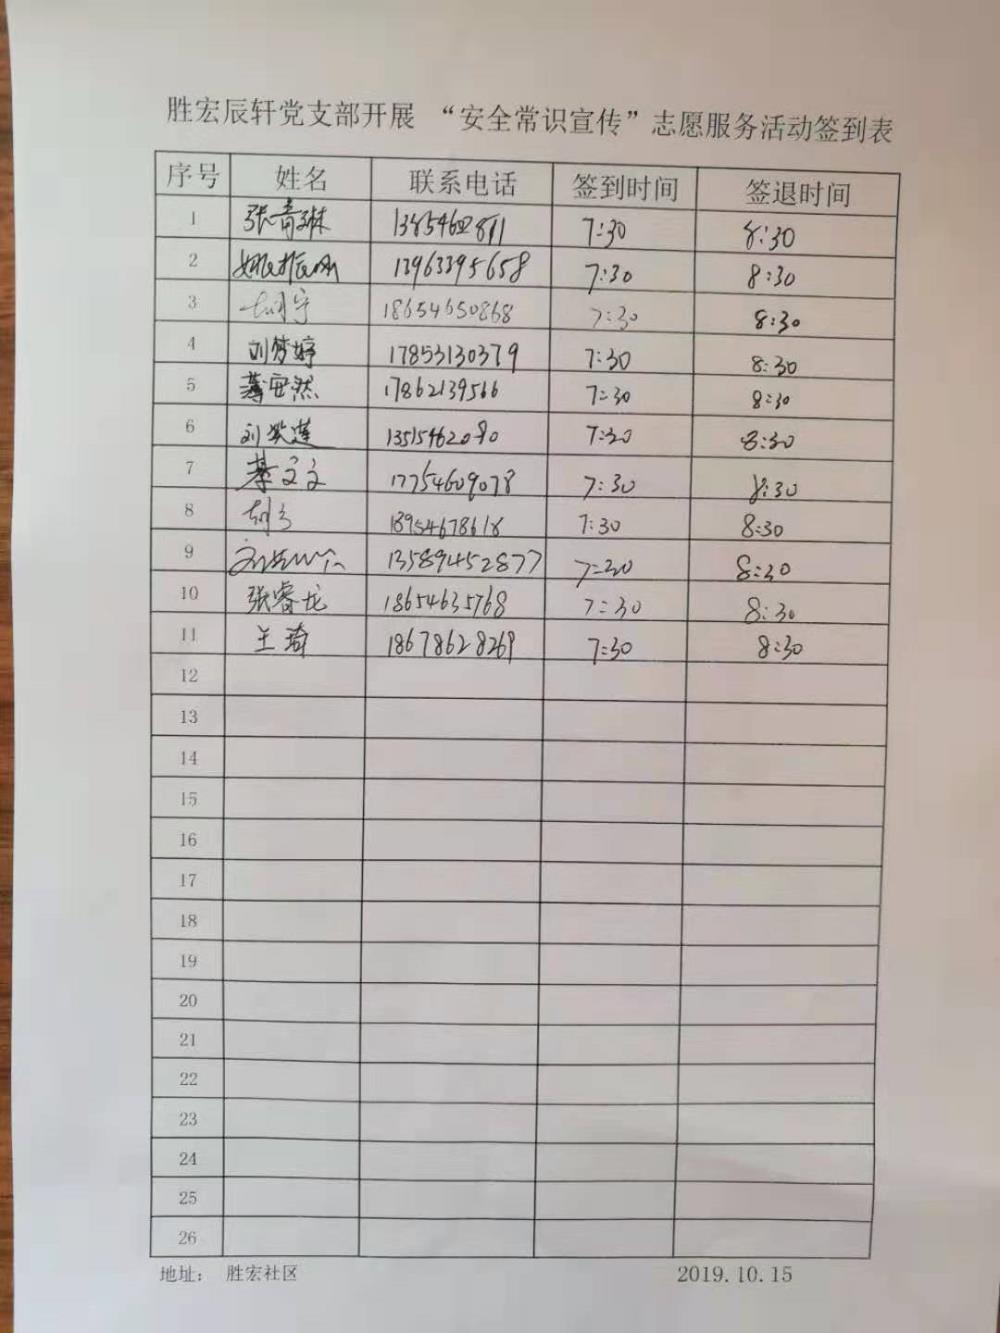 胜宏辰轩党支部开展 “安全常识宣传”志愿服务活动签到表
序号 姓名 联系电话 签到时间 签退时间
1 张青琳 13854602811 7:30 8:30
2 13963395658 7:30 8:30
3 胡宁 18654650868 7:30 8:30
4 刘梦婷 17853130379 7:30 8:30
5 薄安然 17862139566 7:30 8:30
6 刘 莲 13515462090 7:30 8:30
7 綦文文 17754609078 7:30 8:30
8 18954678618 7:30 8:30
9 13589452877 7:30 8:30
10 张睿龙 18654635768 7:30 8:30
11 王琦 18678628269 7:30 8:30
12
13
14
15
16
17
18
19
20
21
22
23
24
25
26
地址： 胜宏社区 2019.10.15